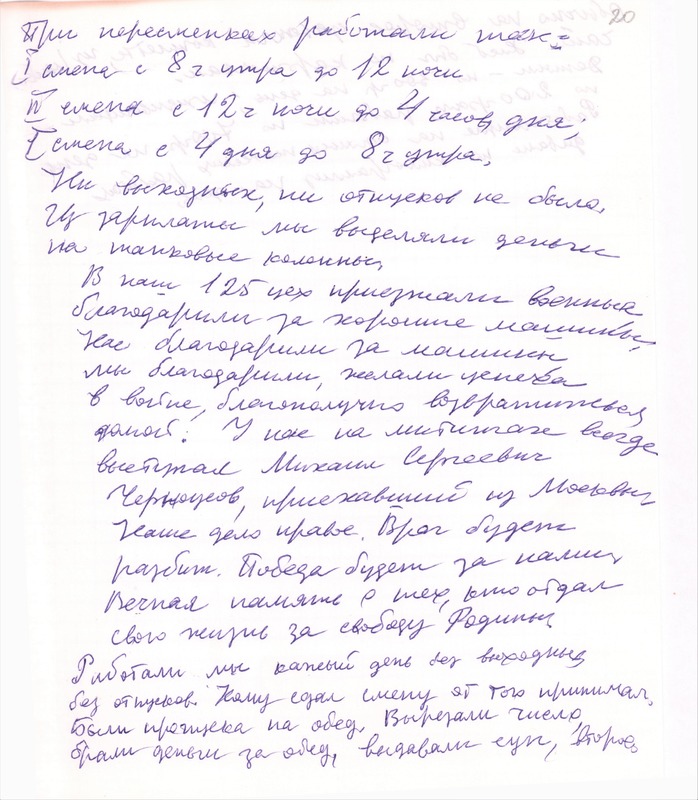 20
При пересменках работали так:
I смена с 8 ч утра до 12 ночи
II смена с 12 ч ночи до 4 часов дня,
I смена с 4 дня до 8 ч утра,
Ни выходных, ни отпусков не было,
Из зарплаты мы выделяли деньги
на танковые колонны,
В наш 125 цех приезжали военные
благодарили за хорошие машины,
Нас благодарили за машины
мы благодарили, желали успеха
в войне, благополучно возвратиться
домой! У нас на митингах всегда
выступал Михаил Сергеевич
Черноусов, приехавший из Москвы,
Наше дело правое. Враг будет
разбит. Победа будет за нами,
Вечная память о тех, кто отдал
свою жизнь за свободу Родины,
Работали мы каждый день без выходных,
без отпусков. Кому сдал смену от того принимал,
Были пропуска на обед, Вырезали число,
брали деньги за обед, выдавали суп, второе,